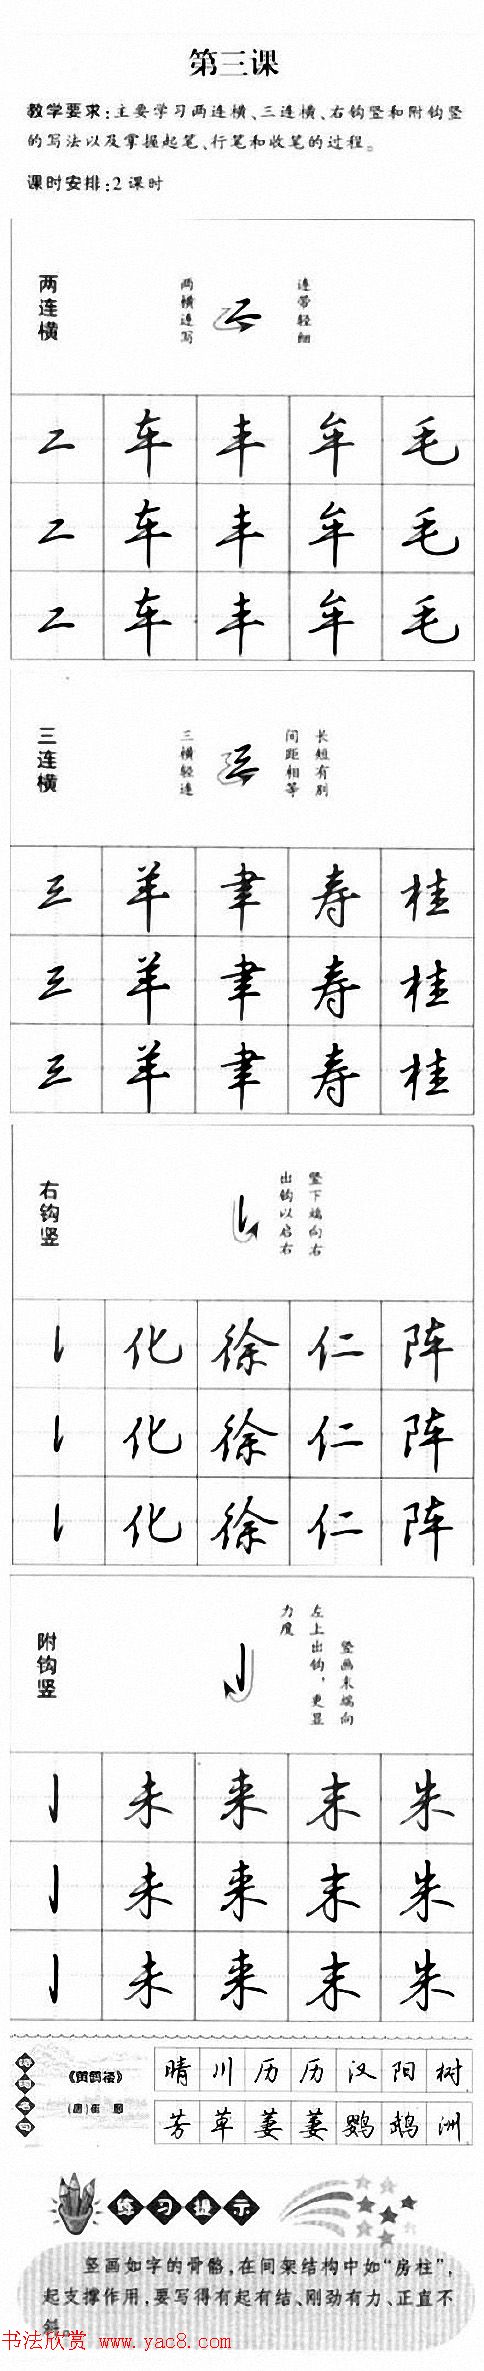 第三课
教学要求:主要学习两连横、三连横、右钩竖和附钩竖
的写法以及掌握起笔、行笔和收笔的过程。
课时安排:2课时
两连横
两横连写
连带轻细
二 车 丰 牟 毛
二 车 丰 牟 毛
二 车 丰 牟 毛
三连横
三横轻连
间距相等
长短有别
三 羊 聿 寿 桂
三 羊 聿 寿 桂
三 羊 聿 寿 桂
右钩竖
竖下端向右
出钩以启右
化 徐 仁 阵
化 徐 仁 阵
化 徐 仁 阵
附钩竖
竖画末端向
左上出钩,更显
力度
亅 未 来 末 朱
亅 未 来 末 朱
亅 未 来 末 朱
《黄鹤楼》
(唐)崔颢
晴 川 历 历 汉 阳 树
芳 草 萋 萋 鹦 鹉 洲
练习提示
竖画如字的骨骼,在间架结构中如“房柱”,
起支撑作用,要写得有起有结、刚劲有力、正直不
斜。
书法欣赏 www.yac8.com